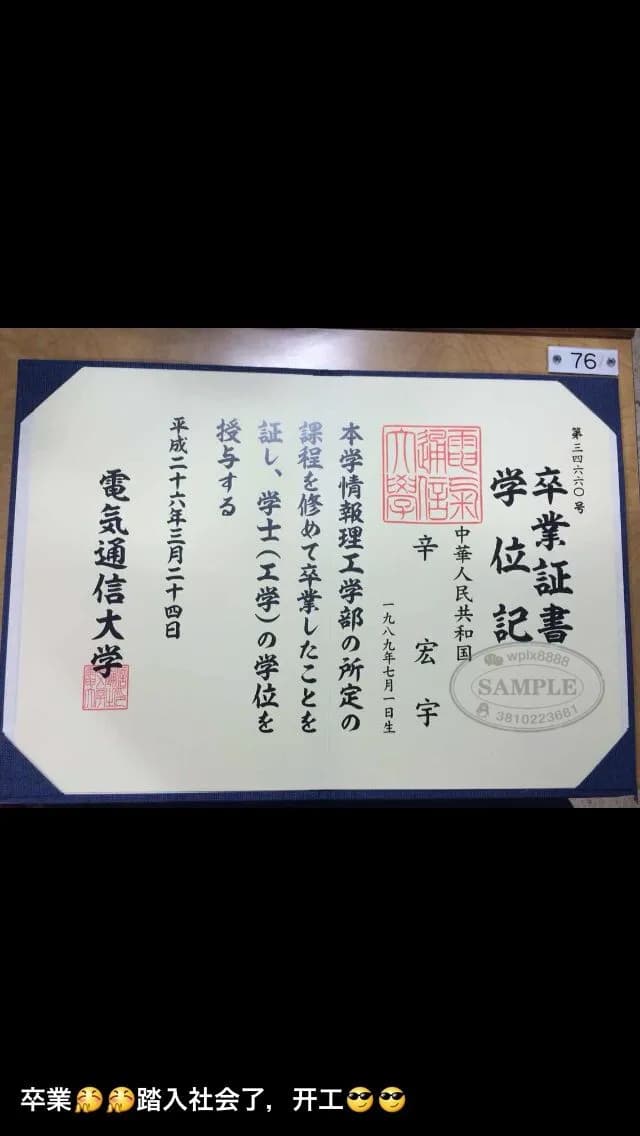 76
第三四六六〇号
卒業証書
学位記
中華人民共和国
辛宏宇
一九八九年七月一日生
電氣通信大學
本学情報理工学部の所定の
課程を修めて卒業したことを
証し、学士(工学)の学位を
授与する
平成二十六年三月二十四日
電気通信大学
wplx8888
SAMPLE
3810223661
卒業🥳🥳踏入社会了，开工😎😎